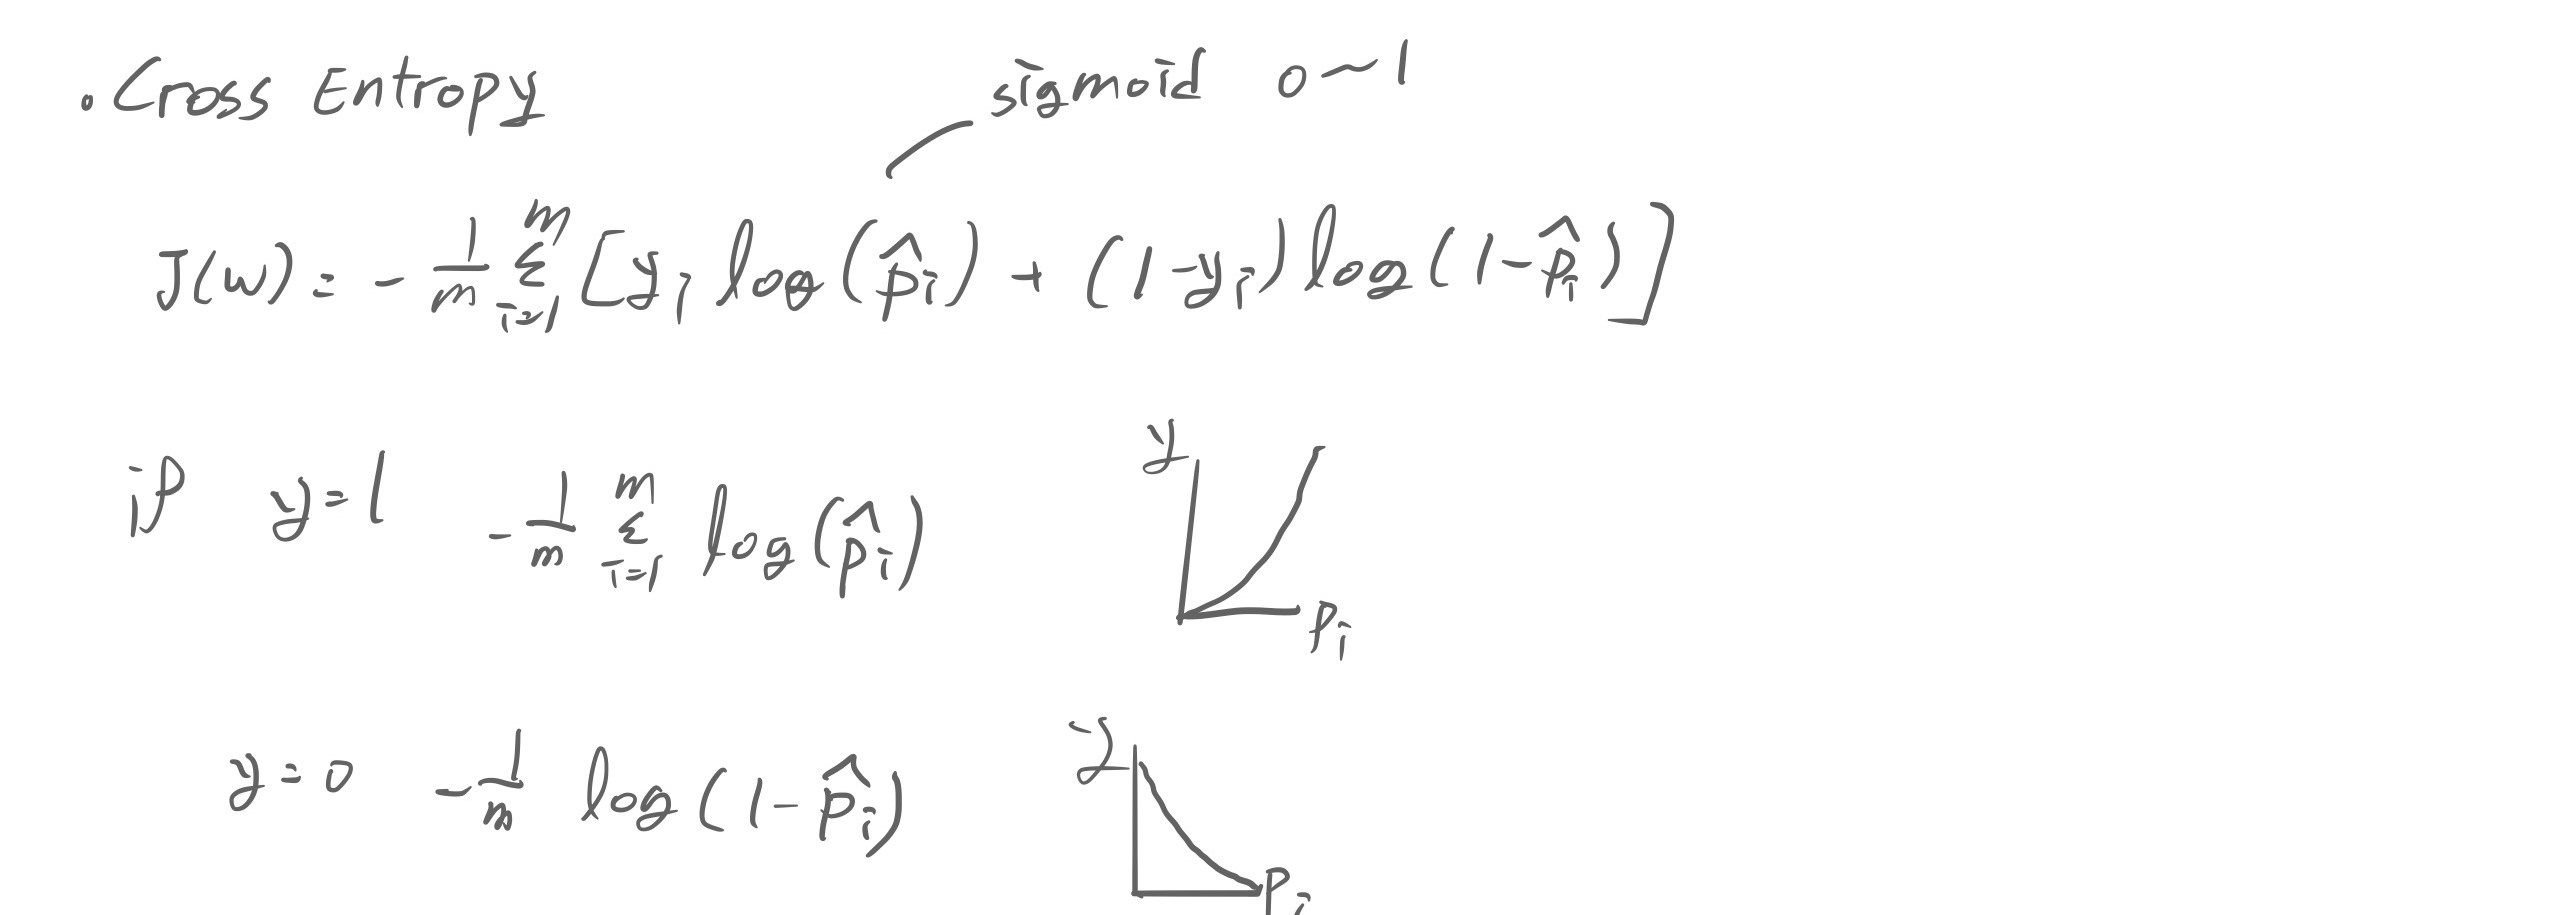 . Cross Entropy
sigmoid 0~1
J(w) = - 1/m Σ_{i=1}^{m} [y_i log(p̂_i) + (1-y_i) log(1-p̂_i)]
if y=1 - 1/m Σ_{i=1}^{m} log(p̂_i)
y
p_i
y=0 - 1/m log(1-p̂_i)
y
p_i